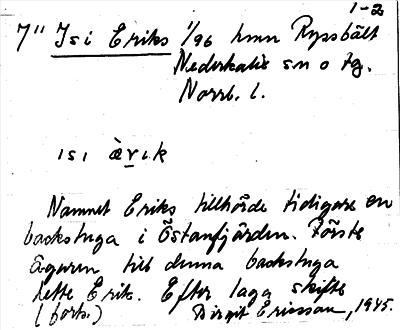 1-2
7" Isi Eriks 1/96 hmn Ryssbält
Nederkalix sn o tg.
Norrb. l.
ısı ὰv̱ı.k
Namnet Eriks tillhörde tidigare en
backstuga i Östanfjärden. Förste
ägaren till denna backstuga
hette Erik. Efter laga skifte
(forts.) Birgit Ericsson, 1945.